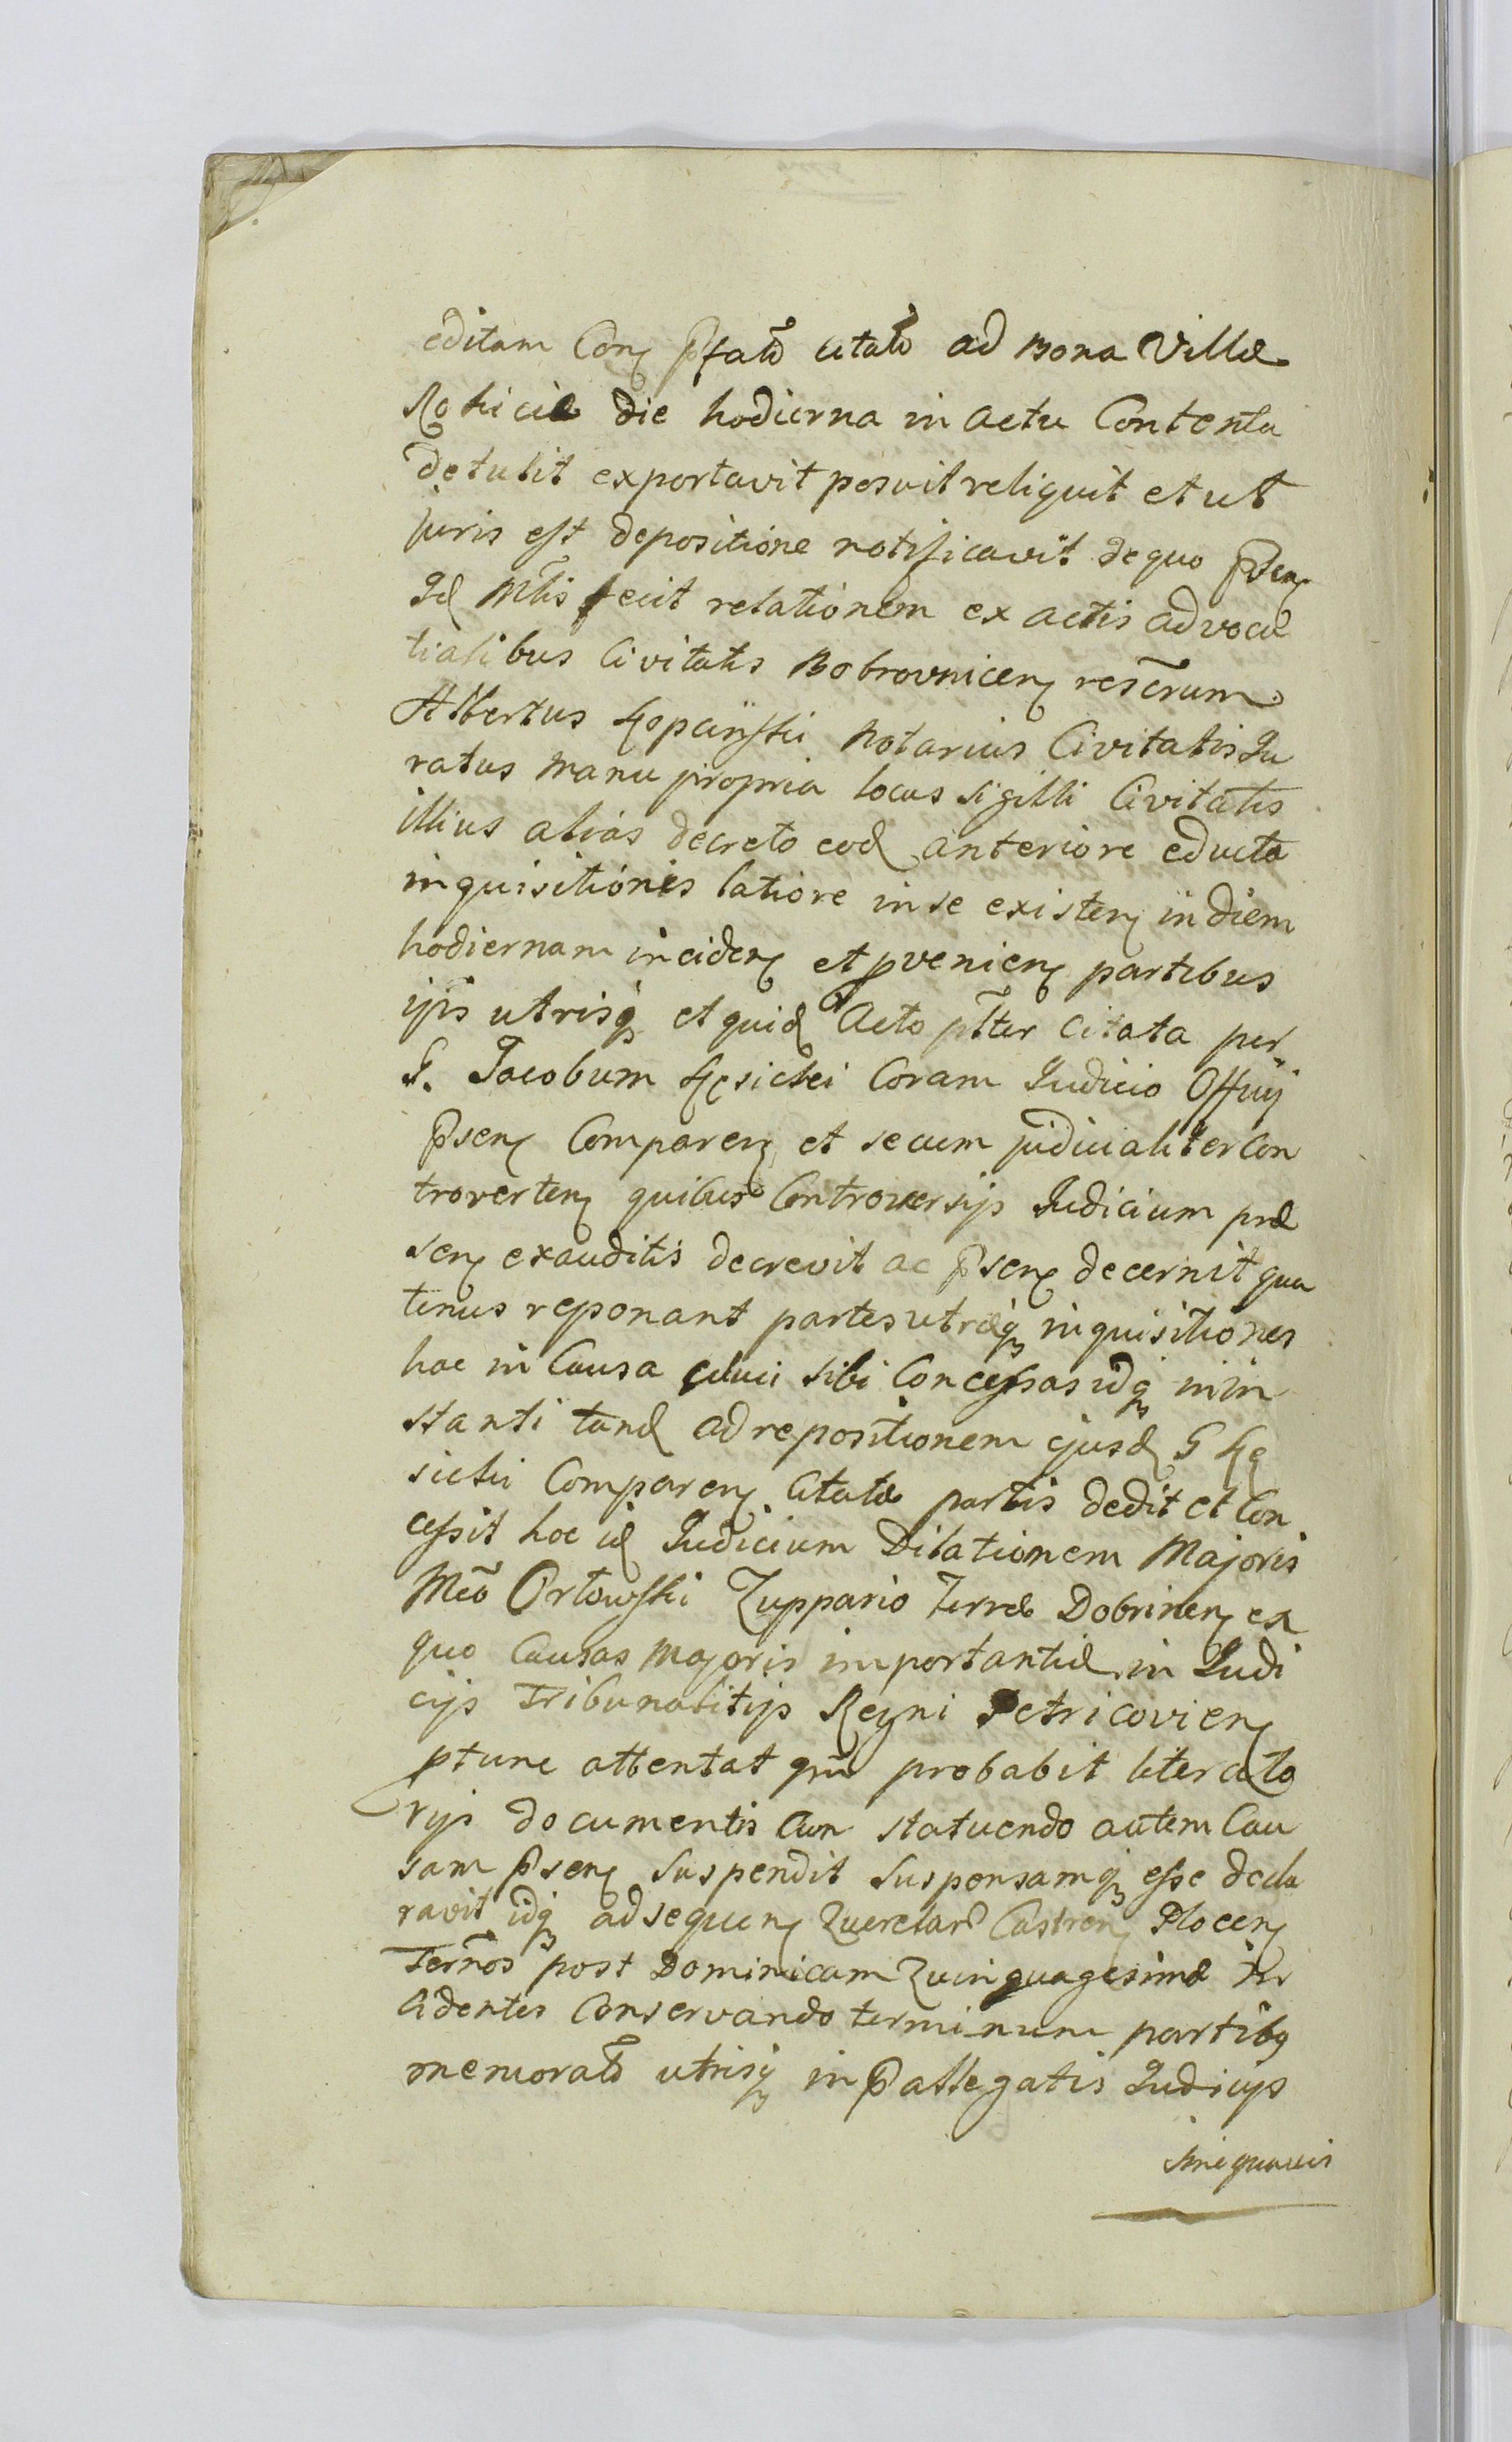 editam Con Pfato citato ad Bona Villæ
Rokiciæ die hodierna in actu Contenta
detulit exportavit posuit reliquit et ut
juris est depositione notificavit de quo Psen
Id Mlis fecit relationem ex actis advoca
tialibus Civitatis Bobrovnicen rescrum
Albertus Kopcinski Notarius Civitatis Ju
ratus manu propria locus sigilli Civitatis
illius alias decreto eod anteriore educta
inquisitionis latiore in se existen in diem
hodiernam inciden et pvenien partibus
ijs utrisq et quid Acto ptter Citata per
G. Jacobum Kęsicki Coram Judicio Offij
Psen Comparen et secum judicialiter Con
troverten quibus Controversijs Judicium præ
sen exauditis decrevit ac Psen decernit qua
tenus reponant partes utræq inquisitiones
hac in Causa educi sibi Concessas idq in in
stanti tand ad repositionem ejusd G Kę
sicki Comparen Citatæ partis dedit et Con
cessit hoc id Judicium Dilationem Majoris
Mco Orłowski Zuppario Terræ Dobrinen ex
quo Causas majoris importantiæ in Judi
cijs Tribunalitijs Regni Petricovien
ptunc attentat qm probabit literato
rijs documentis Con statuendo autem Cau
sam Psen suspendit suspensamq esse decla
ravit idq ad sequen Querelar Castren Plocen
Termos post Dominicam Quinquagesimæ in
cidentes Conservando terminum partibq
memorato utrisq in Pallegatis Judicijs
sine quavis